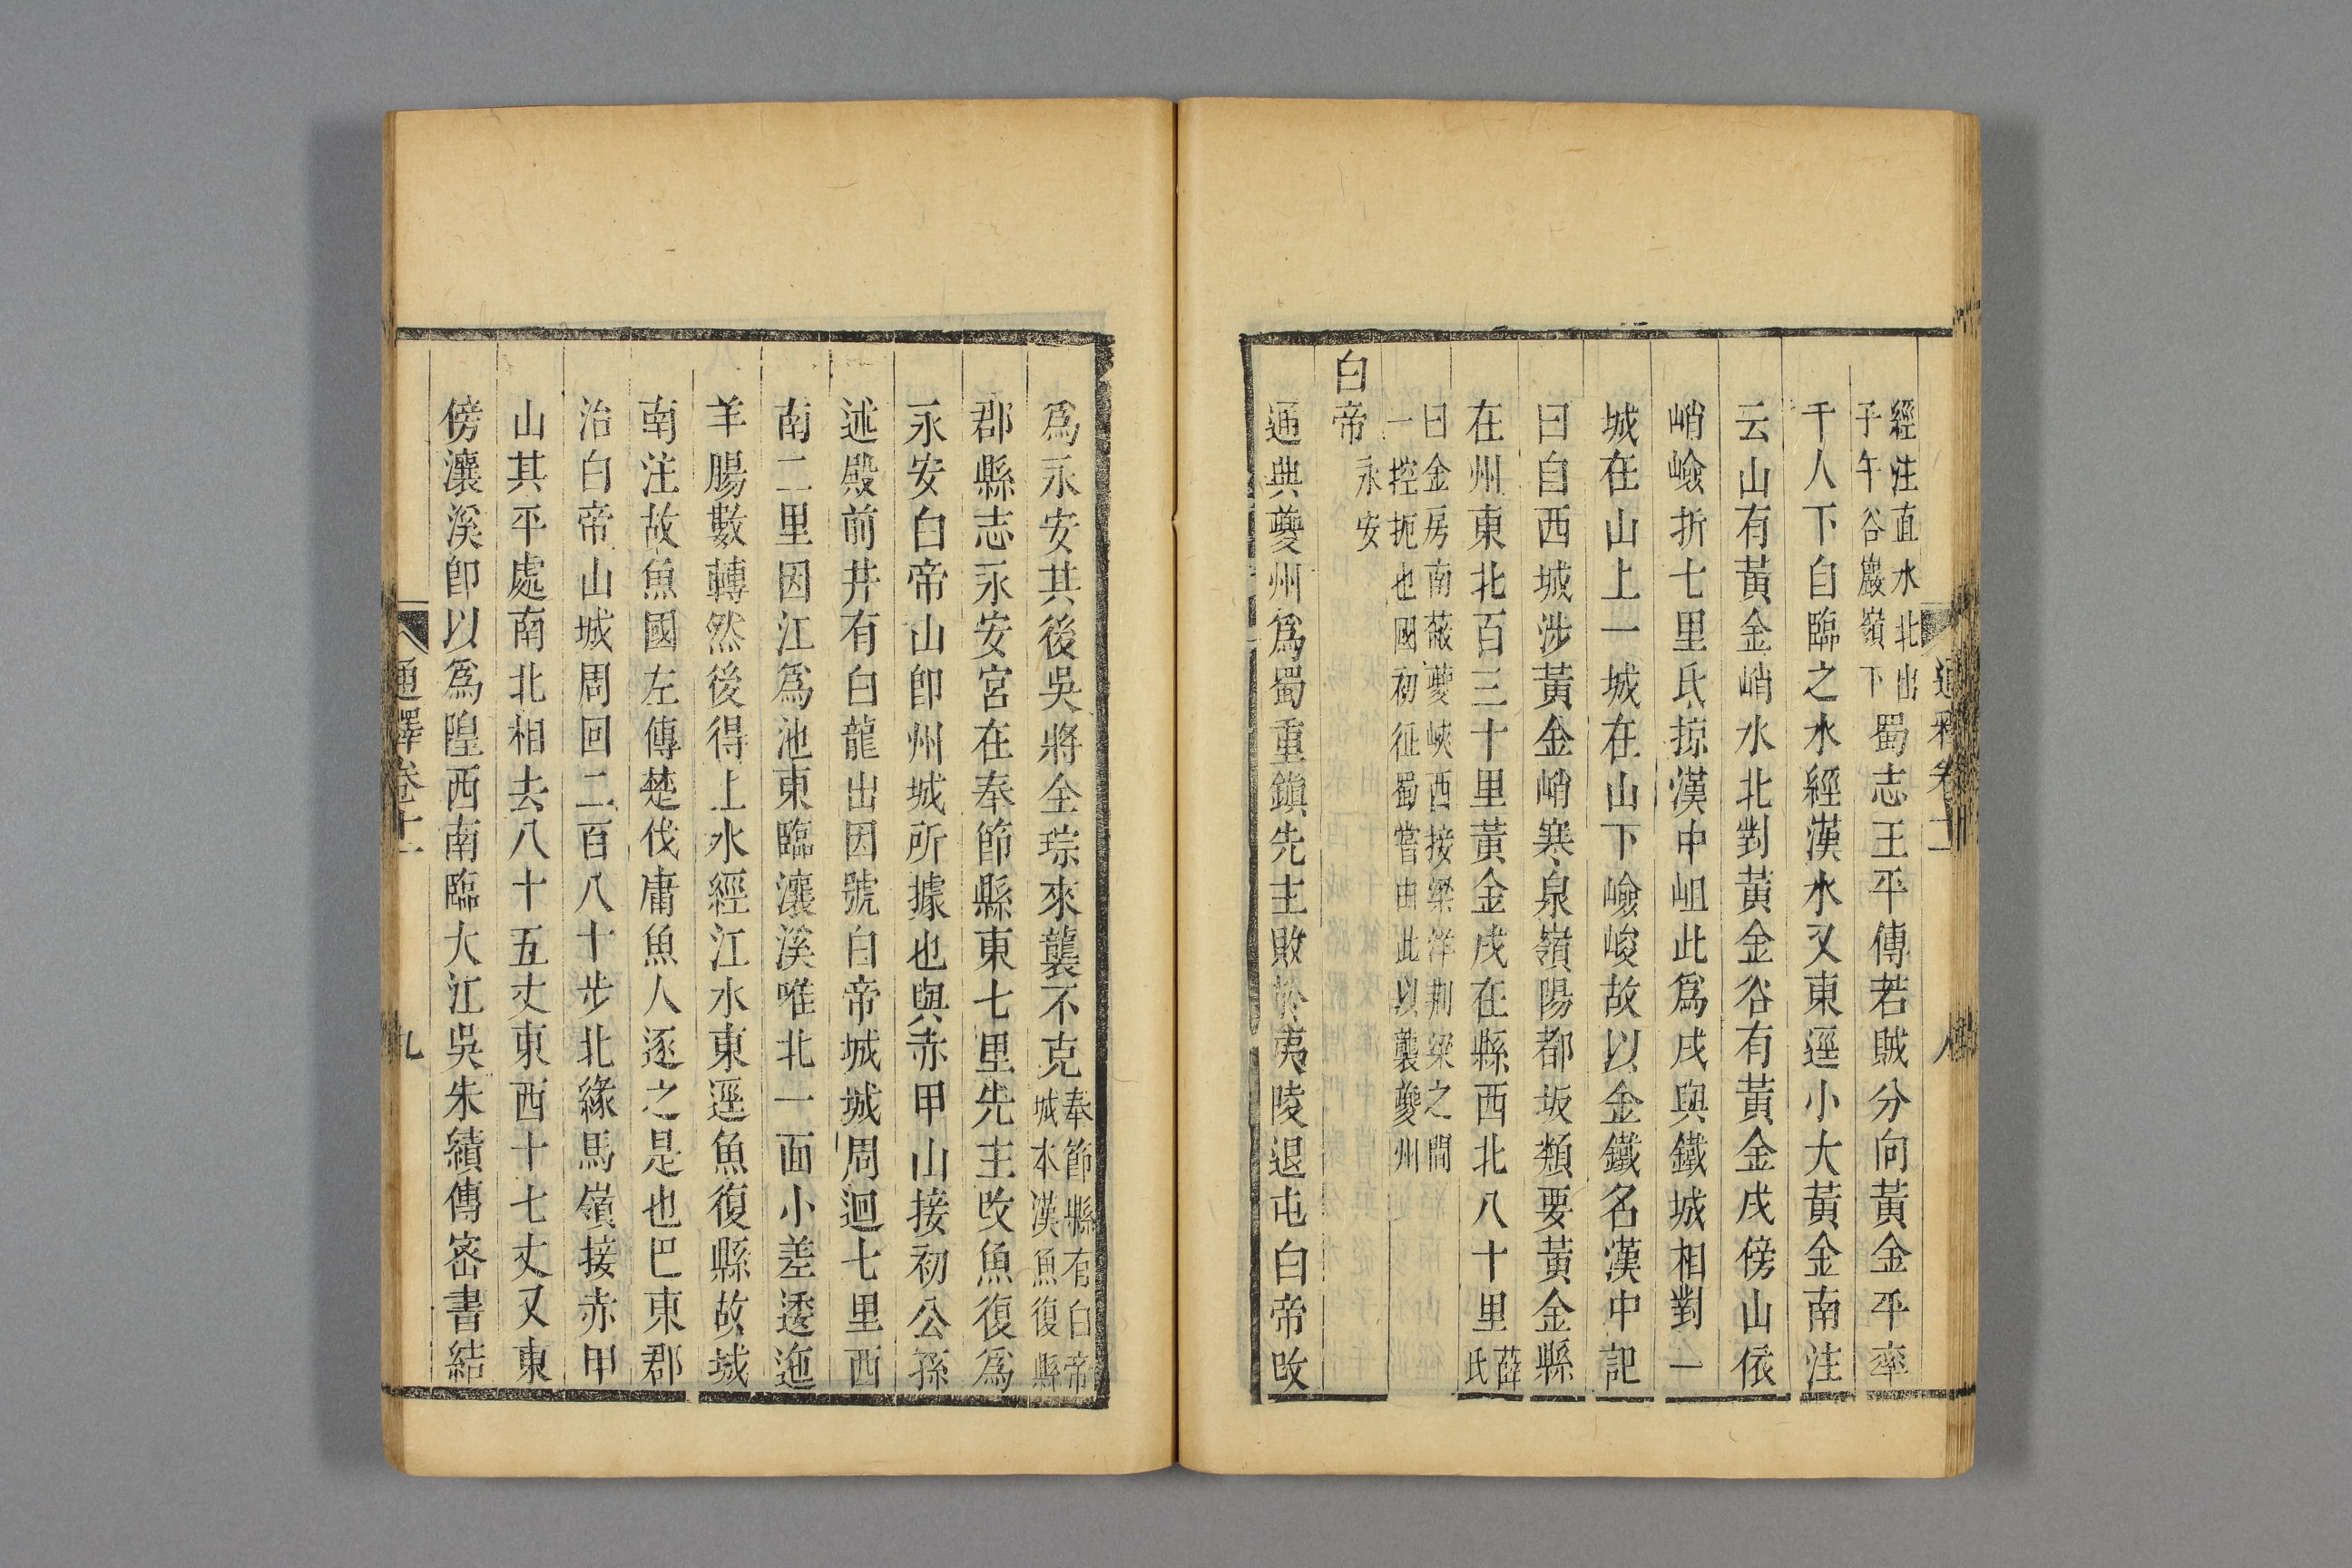 通釋卷十一
八
經注直水北出
子午谷巖嶺下
蜀志王平傳若賊分向黃金平率
千人下自臨之水經漢水又東逕小大黃金南注
云山有黃金峭水北對黃金谷有黃金戍傍山依
峭嶮折七里氐掠漢中岨此爲戍與鐵城相對一
城在山上一城在山下嶮峻故以金鐵名漢中記
曰自西城涉黃金峭寒泉嶺陽都坂類要黃金縣
在州東北百三十里黃金戍在縣西北八十里
薛氏
曰金房南蔽夔峽西接梁洋荆梁之間
一控扼也國初征蜀嘗由此以襲夔州
白帝
永安
通典夔州爲蜀重鎭先主敗於夷陵退屯白帝改
爲永安其後吳將全琮來襲不克
奉節縣有白帝
城本漢魚復縣
郡縣志永安宮在奉節縣東七里先主改魚復爲
永安白帝山卽州城所據也與赤甲山接初公孫
述殿前井有白龍出因號白帝城城周迴七里西
南二里因江爲池東臨瀼溪唯北一面小差逶迤
羊腸數轉然後得上水經江水東逕魚復縣故城
南注故魚國左傳楚伐庸魚人逐之是也巴東郡
治白帝山城周回二百八十步北緣馬嶺接赤甲
山其平處南北相去八十五丈東西十七丈又東
傍瀼溪卽以爲隍西南臨大江吳朱績傳密書結
通釋卷十一
九